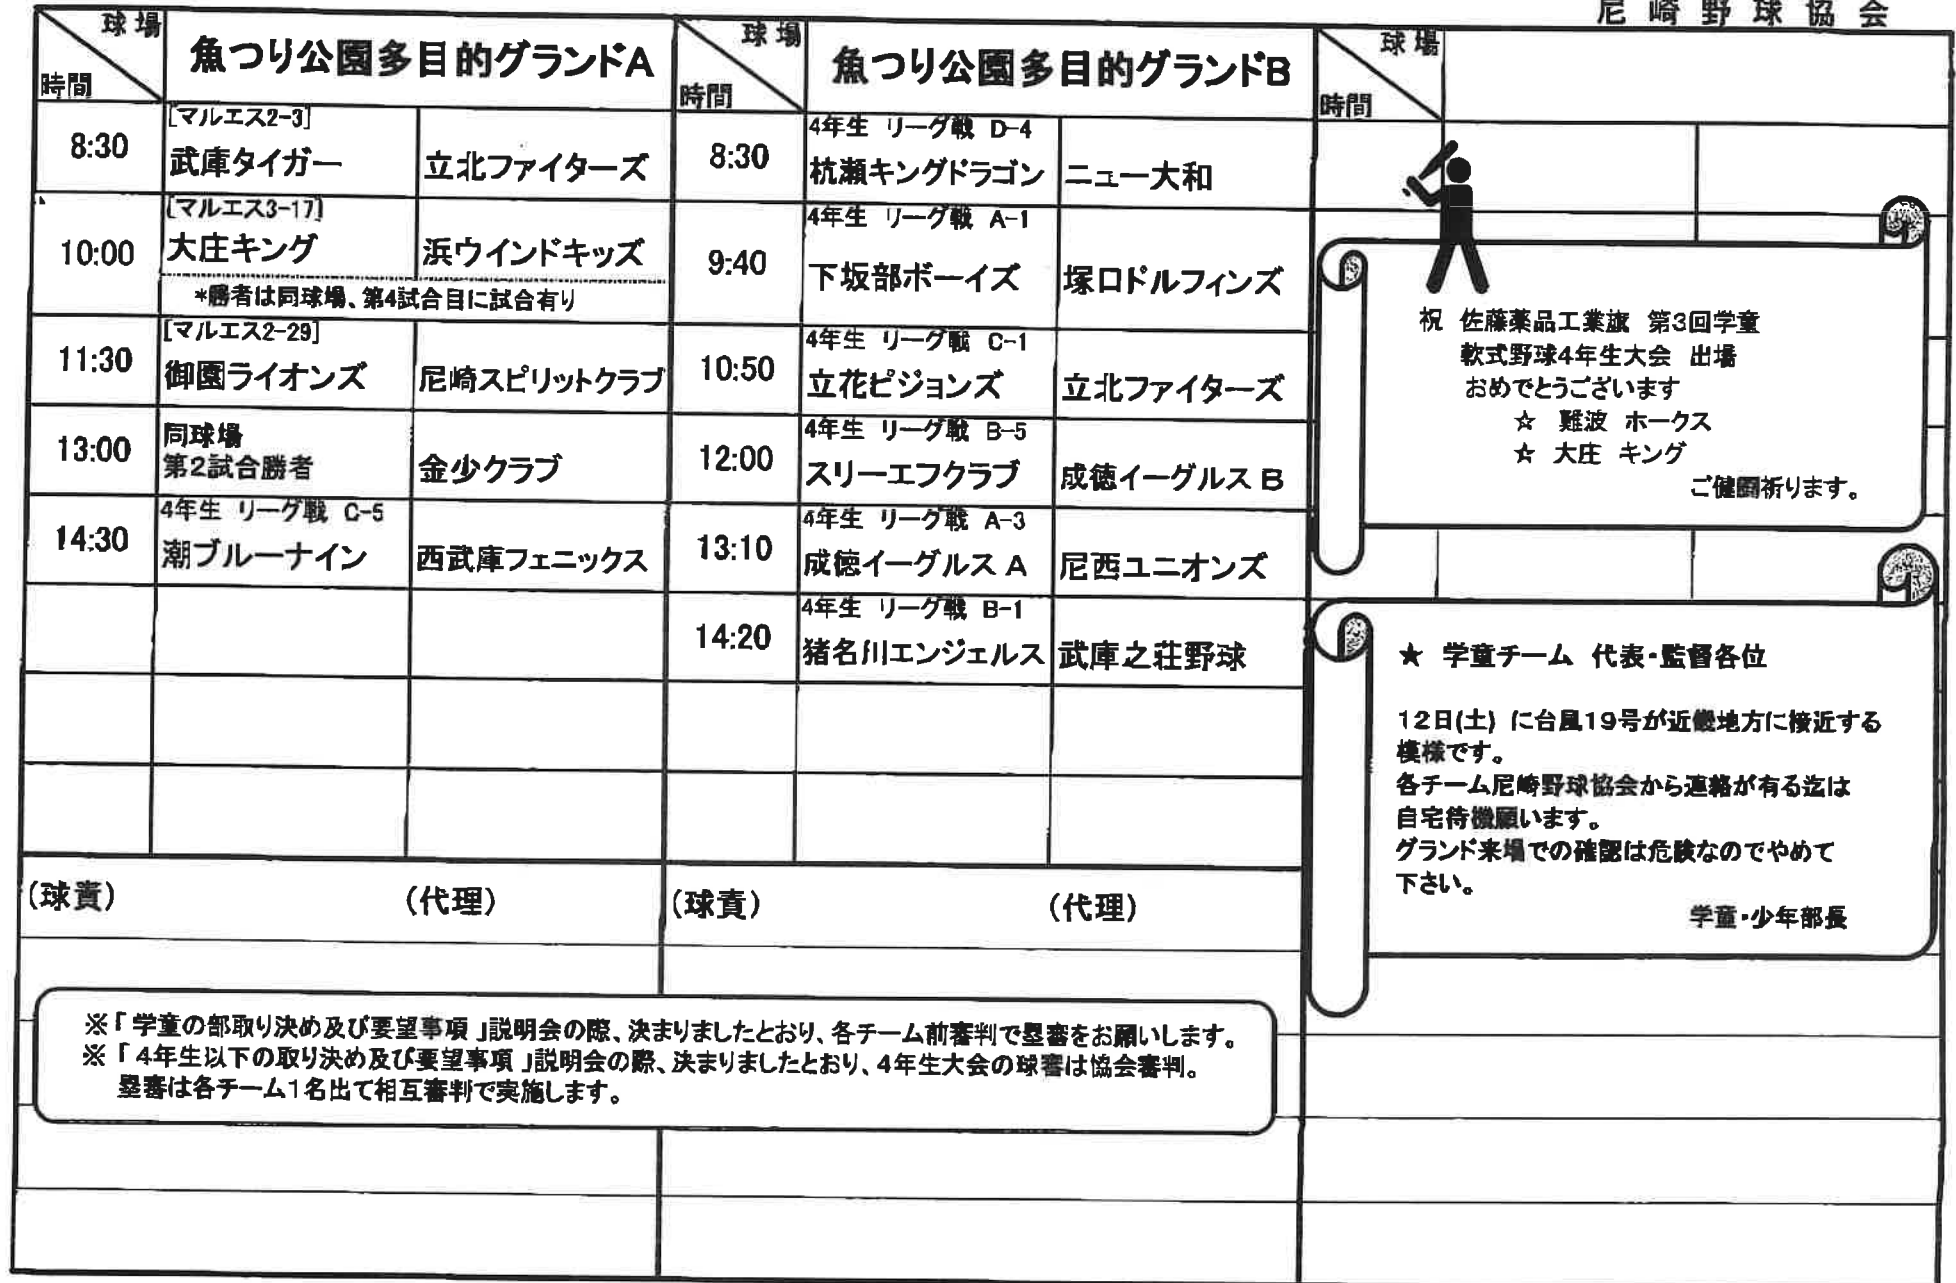 尼崎野球協会
球場
時間
魚つり公園多目的グランドA
8:30
[マルエス2-3]
武庫タイガー
立北ファイターズ
10:00
[マルエス3-17]
大庄キング
浜ウインドキッズ
*勝者は同球場、第4試合目に試合有り
11:30
[マルエス2-29]
御園ライオンズ
尼崎スピリットクラブ
13:00
同球場
第2試合勝者
金少クラブ
14:30
4年生 リーグ戦 C-5
潮ブルーナイン
西武庫フェニックス
(球責)
(代理)
球場
時間
魚つり公園多目的グランドB
8:30
4年生 リーグ戦 D-4
杭瀬キングドラゴン
ニュー大和
9:40
4年生 リーグ戦 A-1
下坂部ボーイズ
塚口ドルフィンズ
10:50
4年生 リーグ戦 C-1
立花ピジョンズ
立北ファイターズ
12:00
4年生 リーグ戦 B-5
スリーエフクラブ
成徳イーグルス B
13:10
4年生 リーグ戦 A-3
成徳イーグルス A
尼西ユニオンズ
14:20
4年生 リーグ戦 B-1
猪名川エンジェルス
武庫之荘野球
(球責)
(代理)
球場
時間
祝 佐藤薬品工業旗 第3回学童
軟式野球4年生大会 出場
おめでとうございます
☆ 難波 ホークス
☆ 大庄 キング
ご健闘祈ります。
★ 学童チーム 代表・監督各位
12日(土) に台風19号が近畿地方に接近する
模様です。
各チーム尼崎野球協会から連絡が有る迄は
自宅待機願います。
グランド来場での確認は危険なのでやめて
下さい。
学童・少年部長
※「 学童の部取り決め及び要望事項 」説明会の際、決まりましたとおり、各チーム前審判で塁審をお願いします。
※「 4年生以下の取り決め及び要望事項 」説明会の際、決まりましたとおり、4年生大会の球審は協会審判。
塁審は各チーム1名出て相互審判で実施します。